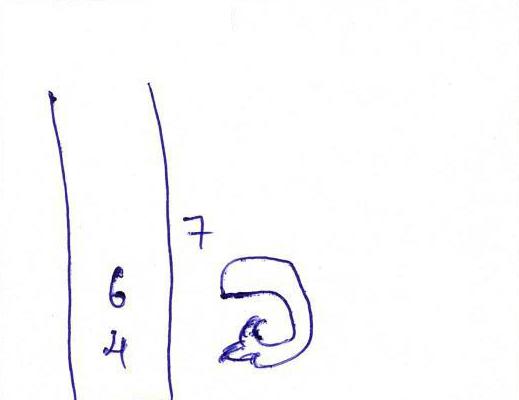 7
6
4